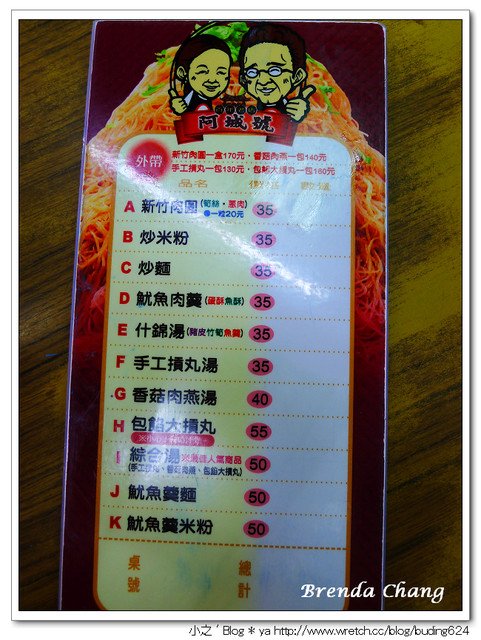 阿城號
外帶
新竹肉圓一盒170元・香菇肉燕一包140元
手工摃丸一包130元・包餡大摃丸一包160元
品名
A 新竹肉圓(筍絲・蔥肉) 35
●一粒20元
B 炒米粉 35
C 炒麵 35
D 魷魚肉羹(蛋酥魚酥) 35
E 什錦湯(豬皮竹筍魚羹) 35
F 手工摃丸湯 35
G 香菇肉燕湯 40
H 包餡大摃丸 55
I 綜合湯 50
(手工摃丸、香菇肉燕、包餡大摃丸)
J 魷魚羹麵 50
K 魷魚羹米粉 50
桌號
總計
Brenda Chang
小之ˊBlog * ya http://www.wretch.cc/blog/buding624